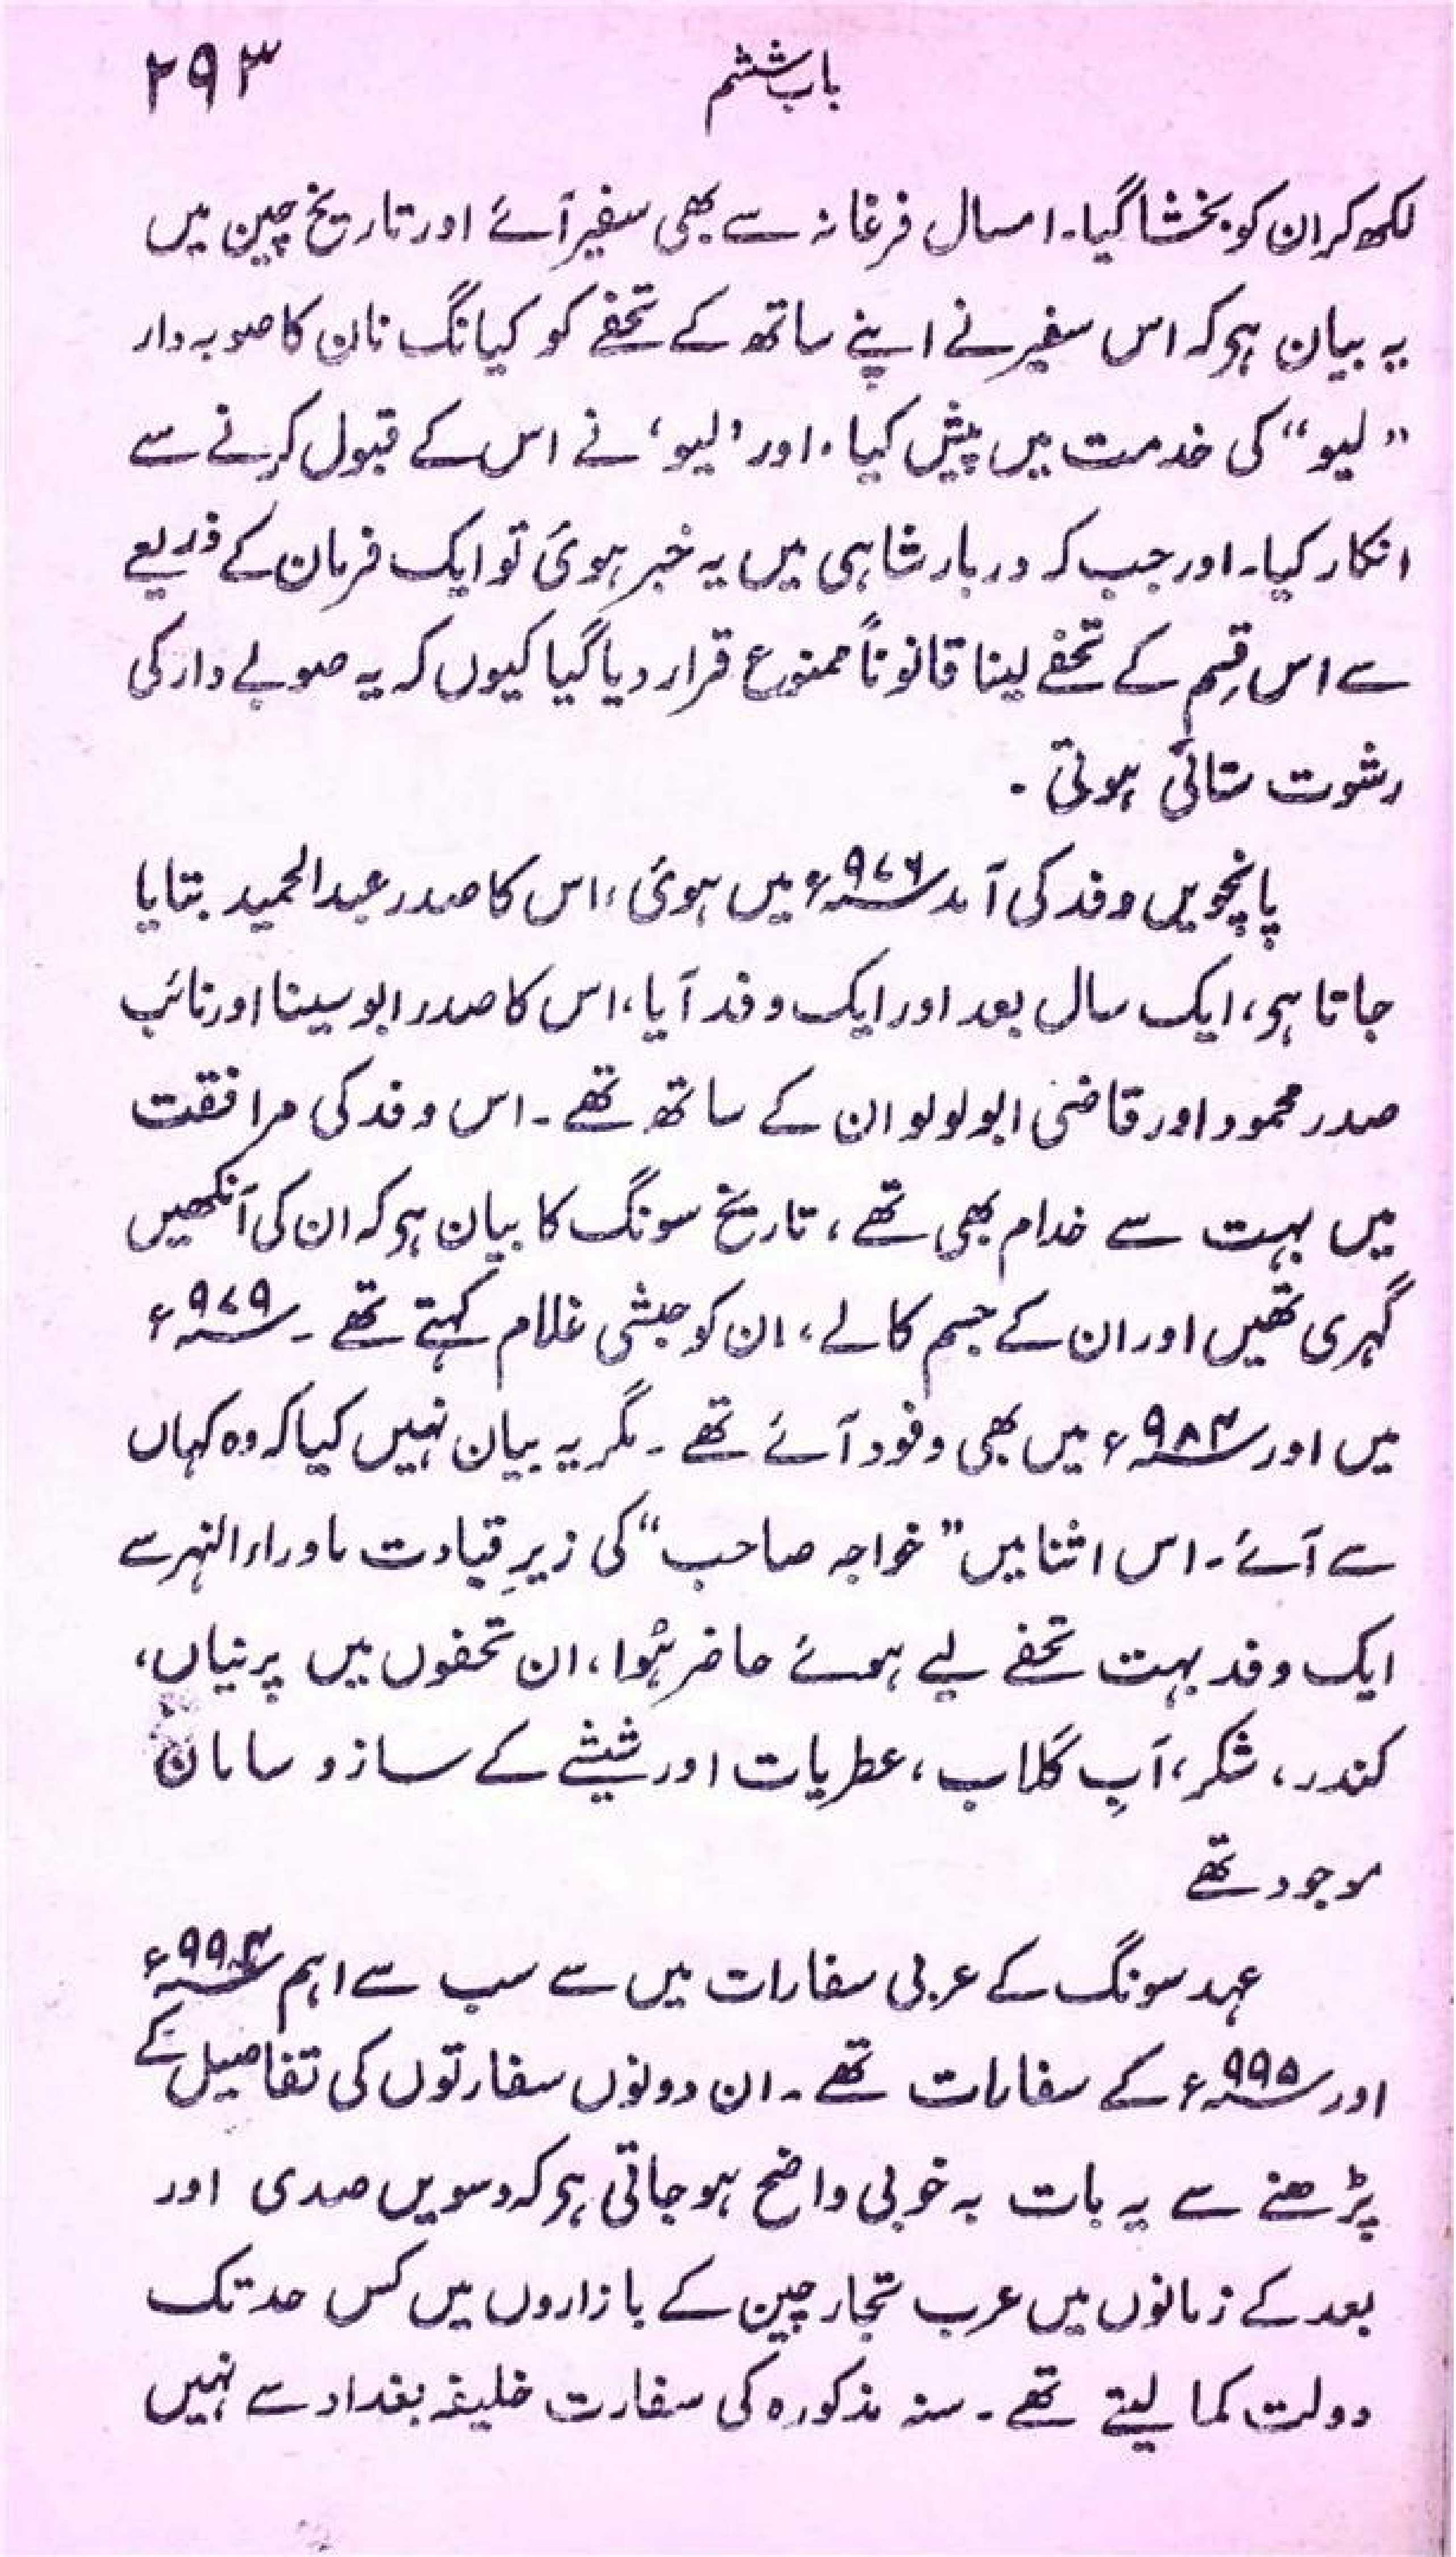 باب ششم ۲۹۳
لکھ کر ان کو بخشا گیا۔ امسال فرغانہ سے بھی سفیر آئے اور تاریخ چین میں
یہ بیان ہو کہ اس سفیر نے اپنے ساتھ کے تحفے کو کیانگ نان کا صوبہ دار
”لیو“ کی خدمت میں پیش کیا، اور ’لیو‘ نے اس کے قبول کرنے سے
انکار کیا۔ اور جب کہ دربار شاہی میں یہ خبر ہوئی تو ایک فرمان کے ذریعے
سے اس قِسم کے تحفے لینا قانوناً ممنوع قرار دیا گیا کیوں کہ یہ صوبے دار کی
رشوت ستائی ہوتی ۔
پانچویں وفد کی آمد ۹۷۶ء میں ہوئی، اس کا صدر عبدالحمید بتایا
جاتا ہو، ایک سال بعد اور ایک وفد آیا، اس کا صدر ابو سینا اور نائب
صدر محمود اور قاضی ابولولو ان کے ساتھ تھے ۔ اس وفد کی مرافقت
میں بہت سے خدام بھی تھے، تاریخ سونگ کا بیان ہو کہ ان کی آنکھیں
گہری تھیں اور ان کے جسم کالے، ان کو حبشی غلام کہتے تھے ۔ ۹۷۹ء
میں اور ۹۸۴ء میں بھی وفود آئے تھے ۔ مگر یہ بیان نہیں کیا کہ وہ کہاں
سے آئے ۔ اس اثنا میں ”خواجہ صاحب“ کی زیرِ قیادت ماوراء النہر سے
ایک وفد بہت تحفے لیے ہوئے حاضر ہُوا، ان تحفوں میں پرنیاں،
کندر، شکر، آبِ گلاب، عطریات اور شیشے کے ساز و سامان
موجود تھے
عہد سونگ کے عربی سفارات میں سے سب سے اہم ۹۹۳ء
اور ۹۹۵ء کے سفارات تھے ۔ ان دونوں سفارتوں کی تفاصیل کے
پڑھنے سے یہ بات بہ خوبی واضح ہو جاتی ہو کہ دسویں صدی اور
بعد کے زمانوں میں عرب تجار چین کے بازاروں میں کس حد تک
دولت کما لیتے تھے ۔ سنہ مذکورہ کی سفارت خلیفہ بغداد سے نہیں